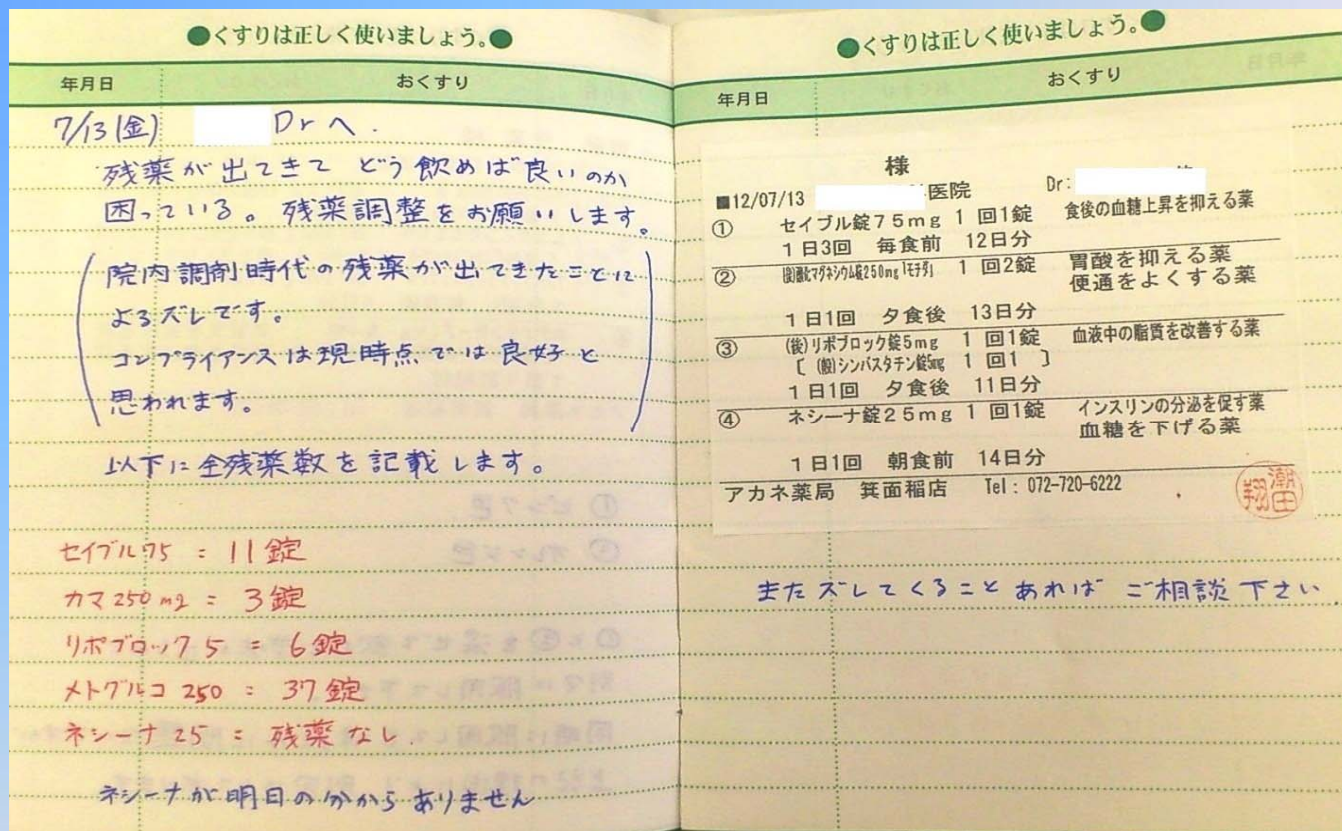 ●くすりは正しく使いましょう。●
年月日 おくすり
7/13(金) Drへ.
残薬が出てきて どう飲めば良いのか
困っている。残薬調整をお願いします。
院内調剤時代の残薬が出てきたことに
よるズレです。
コンプライアンスは現時点では良好と
思われます。
以下に全残薬数を記載します。
セイブル75 = 11錠
カマ250mg = 3錠
リポブロック5 = 6錠
メトグルコ250 = 37錠
ネシーナ25 = 残薬なし.
ネシーナが明日の分からありません
●くすりは正しく使いましょう。●
年月日 おくすり
様
■12/07/13 医院 Dr:
① セイブル錠75mg 1回1錠 食後の血糖上昇を抑える薬
1日3回 毎食前 12日分
② 酸化マグネシウム錠250mg「モチダ」 1回2錠 胃酸を抑える薬
便通をよくする薬
1日1回 夕食後 13日分
③ (後)リポブロック錠5mg 1回1錠 血液中の脂質を改善する薬
[ (般)シンバスタチン錠5mg 1回1 ]
1日1回 夕食後 11日分
④ ネシーナ錠25mg 1回1錠 インスリンの分泌を促す薬
血糖を下げる薬
1日1回 朝食前 14日分
アカネ薬局 箕面稲店 Tel: 072-720-6222
またズレてくることあれば ご相談下さい